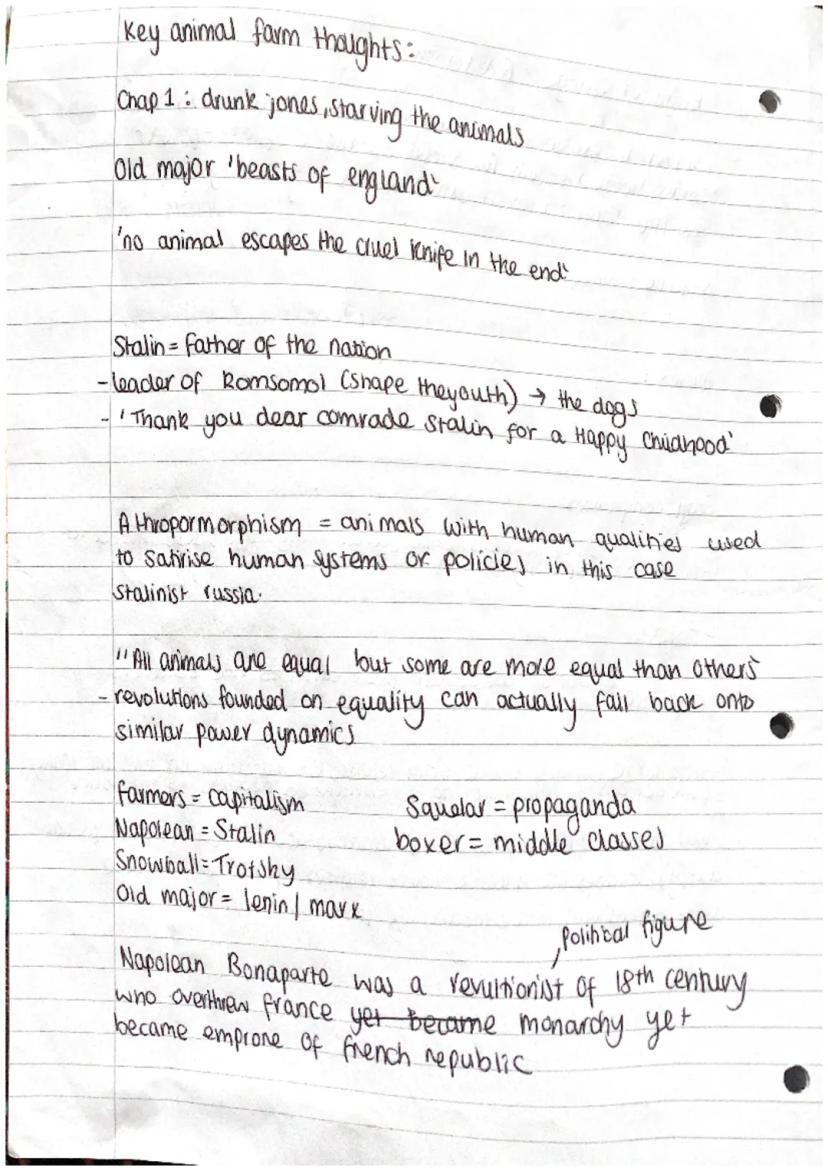 Key animal farm thoughts:
Chap 1: drunk jones, starving the animals
Old major 'beasts of england'
'no animal escapes the cruel knife in the end'
Stalin = father of the nation
- leader of Romsomol (shape the youth) → the dogs
- 'Thank you dear comrade Stalin for a Happy Childhood'
Athropormorphism = animals with human qualities used
to satirise human systems or policies in this case
Stalinist russia.
"All animals are equal but some are more equal than others"
- revolutions founded on equality can actually fall back onto
similar power dynamics
farmers = capitalism
Napolean = Stalin
Snowball = Trotsky
Old major = lenin / marx
Squelar = propaganda
boxer = middle classes
political figure
Napolean Bonaparte was a revultionist of 18th century
who overthrew france yet became monarchy yet
became emprone of french republic